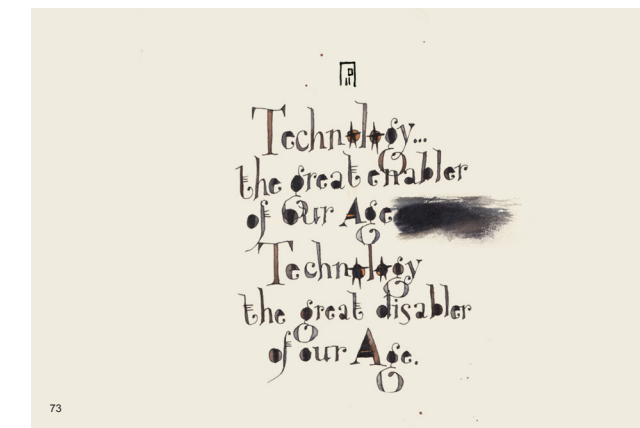 Technology...
the great enabler
of Our Age
Technology
the great disabler
of our Age.
73